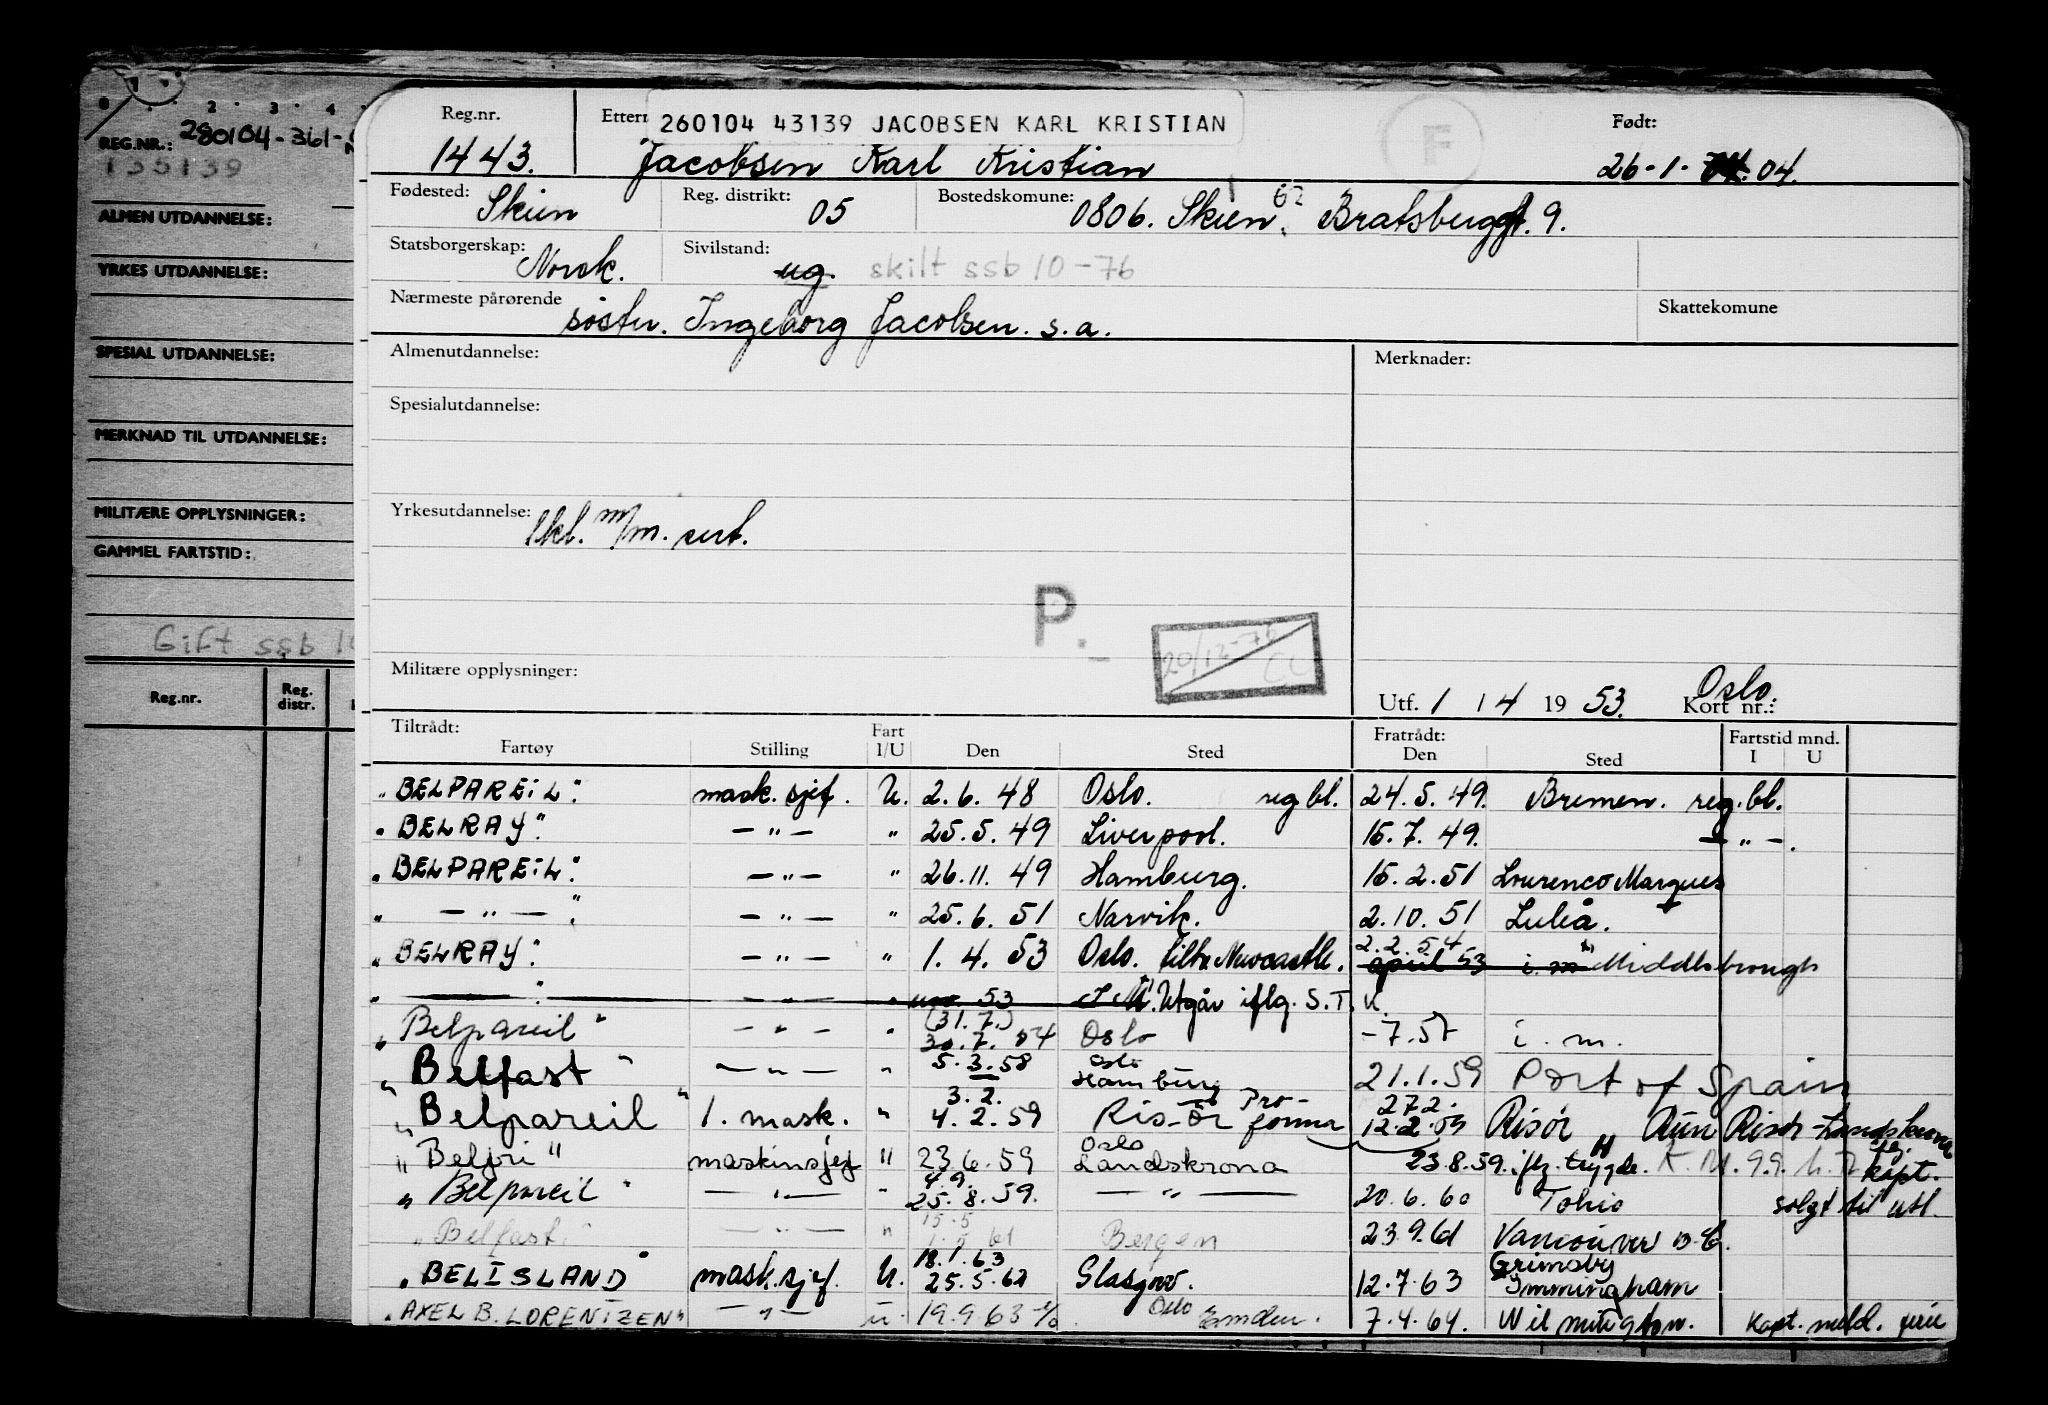 0 . . 2 . 3 . 4
REG.NR.: 280104-361-
135139
ALMEN UTDANNELSE:
YRKES UTDANNELSE:
SPESIAL UTDANNELSE:
MERKNAD TIL UTDANNELSE:
MILITÆRE OPPLYSNINGER:
GAMMEL FARTSTID:
Gift ssb 10
Reg.nr. Reg. distr.
Reg.nr. 1443.
260104 43139 JACOBSEN KARL KRISTIAN
Jacobsen Karl Kristian
F
Født: 26-1-04.
Fødested: Skien
Reg. distrikt: 05
Bostedskomune: 0806. Skien, Bratsberggt. 9.
Statsborgerskap: Norsk.
Sivilstand: ug. skilt ssb 10-76
Nærmeste pårørende søster. Ingeborg Jacobsen. s.a.
Skattekomune
Almenutdannelse:
Merknader:
Spesialutdannelse:
Yrkesutdannelse: 1kl. m/m. sert.
P.
20/12-76 CL
Militære opplysninger:
Utf. 1 / 4 19 53. Kort nr.: Oslo.
Tiltrådt: Fartøy Stilling Fart I/U Den Sted Fratrådt: Den Sted Fartstid mnd. I U
"BELPAREIL" mask. sjef. U. 2.6.48 Oslo. reg bl. 24.5.49. Bremen. reg. bl.
"BELRAY" — " — " 25.5.49 Liverpool. 15.7.49. — " —.
"BELPAREIL" — " — " 26.11.49 Hamburg. 15.2.51 Lourenco Marques
" — " — " — " — " 25.6.51 Narvik. 2.10.51 Luleå.
"BELRAY" — " — " 1.4.53 Oslo. tiltr Newcastle. 2.2.54 april 53 i.m Middlesbrough
" — " — " — " 53 I M. Utgår iflg. S.T.K.
"Belpareil" — " — " (31.7.) 30.7.54 Oslo -7.57 i.m.
"Belfast" — " — " 5.3.58 Oslo Hamburg 21.1.59 Port of Spain
"Belpareil" 1. mask. " 3.2. 4.2.59 Risør Pro-forma 27.2. 12.2.59 Risør Risør-Landskrona
"Belpri" maskinsjef " 23.6.59 Oslo Landskrona 23.8.59. iflg. trygde.
"Belpareil" — " — " 4.9. 25.8.59. — " — 20.6.60 Tokio solgt til utl.
"Belfast" — " — " 15.5 61 Bergen 23.9.61 Vancouver B.C.
"BELISLAND" mask.sjef. U. 18.1.63 25.5.62 Glasgow. 12.7.63 Grimsby Immingham
"AXEL B. LORENTZEN" — " — u. 19.9 63 Oslo Emden. 7.4.64. Wilmington. Kapt. meld. ferie